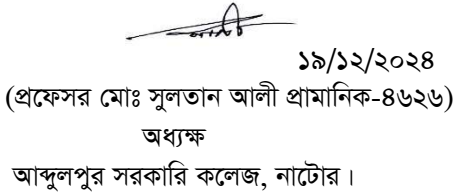 ১৯/১২/২০২৪
(প্রফেসর মোঃ সুলতান আলী প্রামানিক-৪৬২৬)
অধ্যক্ষ
আব্দুলপুর সরকারি কলেজ, নাটোর।